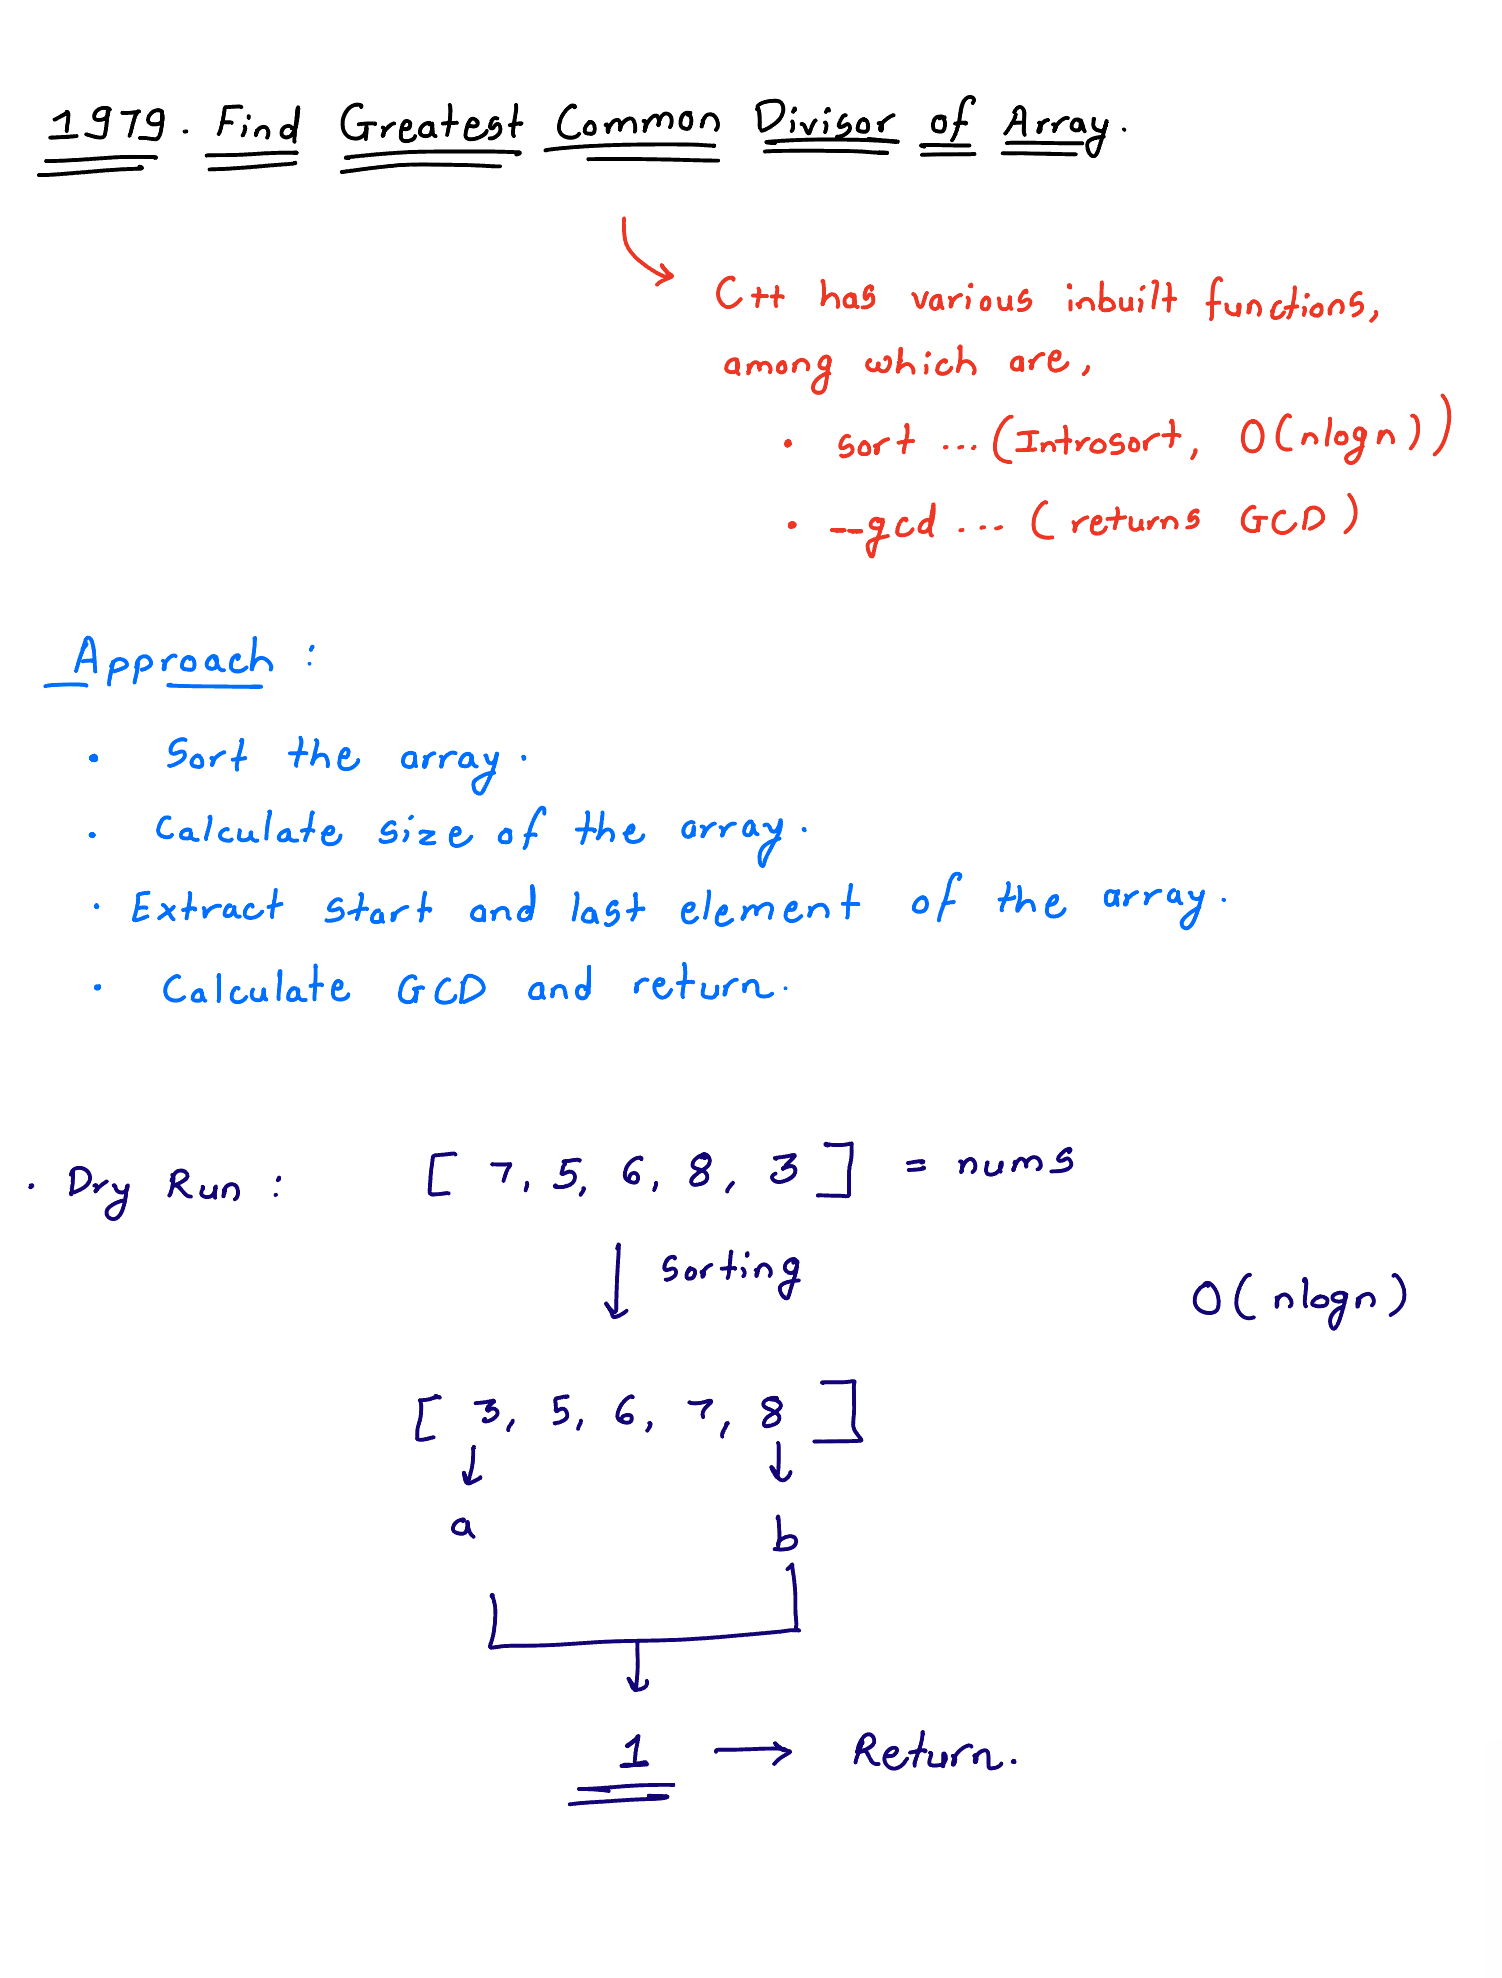 1979. Find Greatest Common Divisor of Array.
C++ has various inbuilt functions,
among which are,
• sort ... (Introsort, O(nlogn))
• __gcd ... (returns GCD)
Approach :
• Sort the array.
• Calculate size of the array.
• Extract start and last element of the array.
• Calculate GCD and return.
• Dry Run : [ 7, 5, 6, 8, 3 ] = nums
↓ sorting
O(nlogn)
[ 3, 5, 6, 7, 8 ]
↓ ↓
a b
↓
1 → Return.